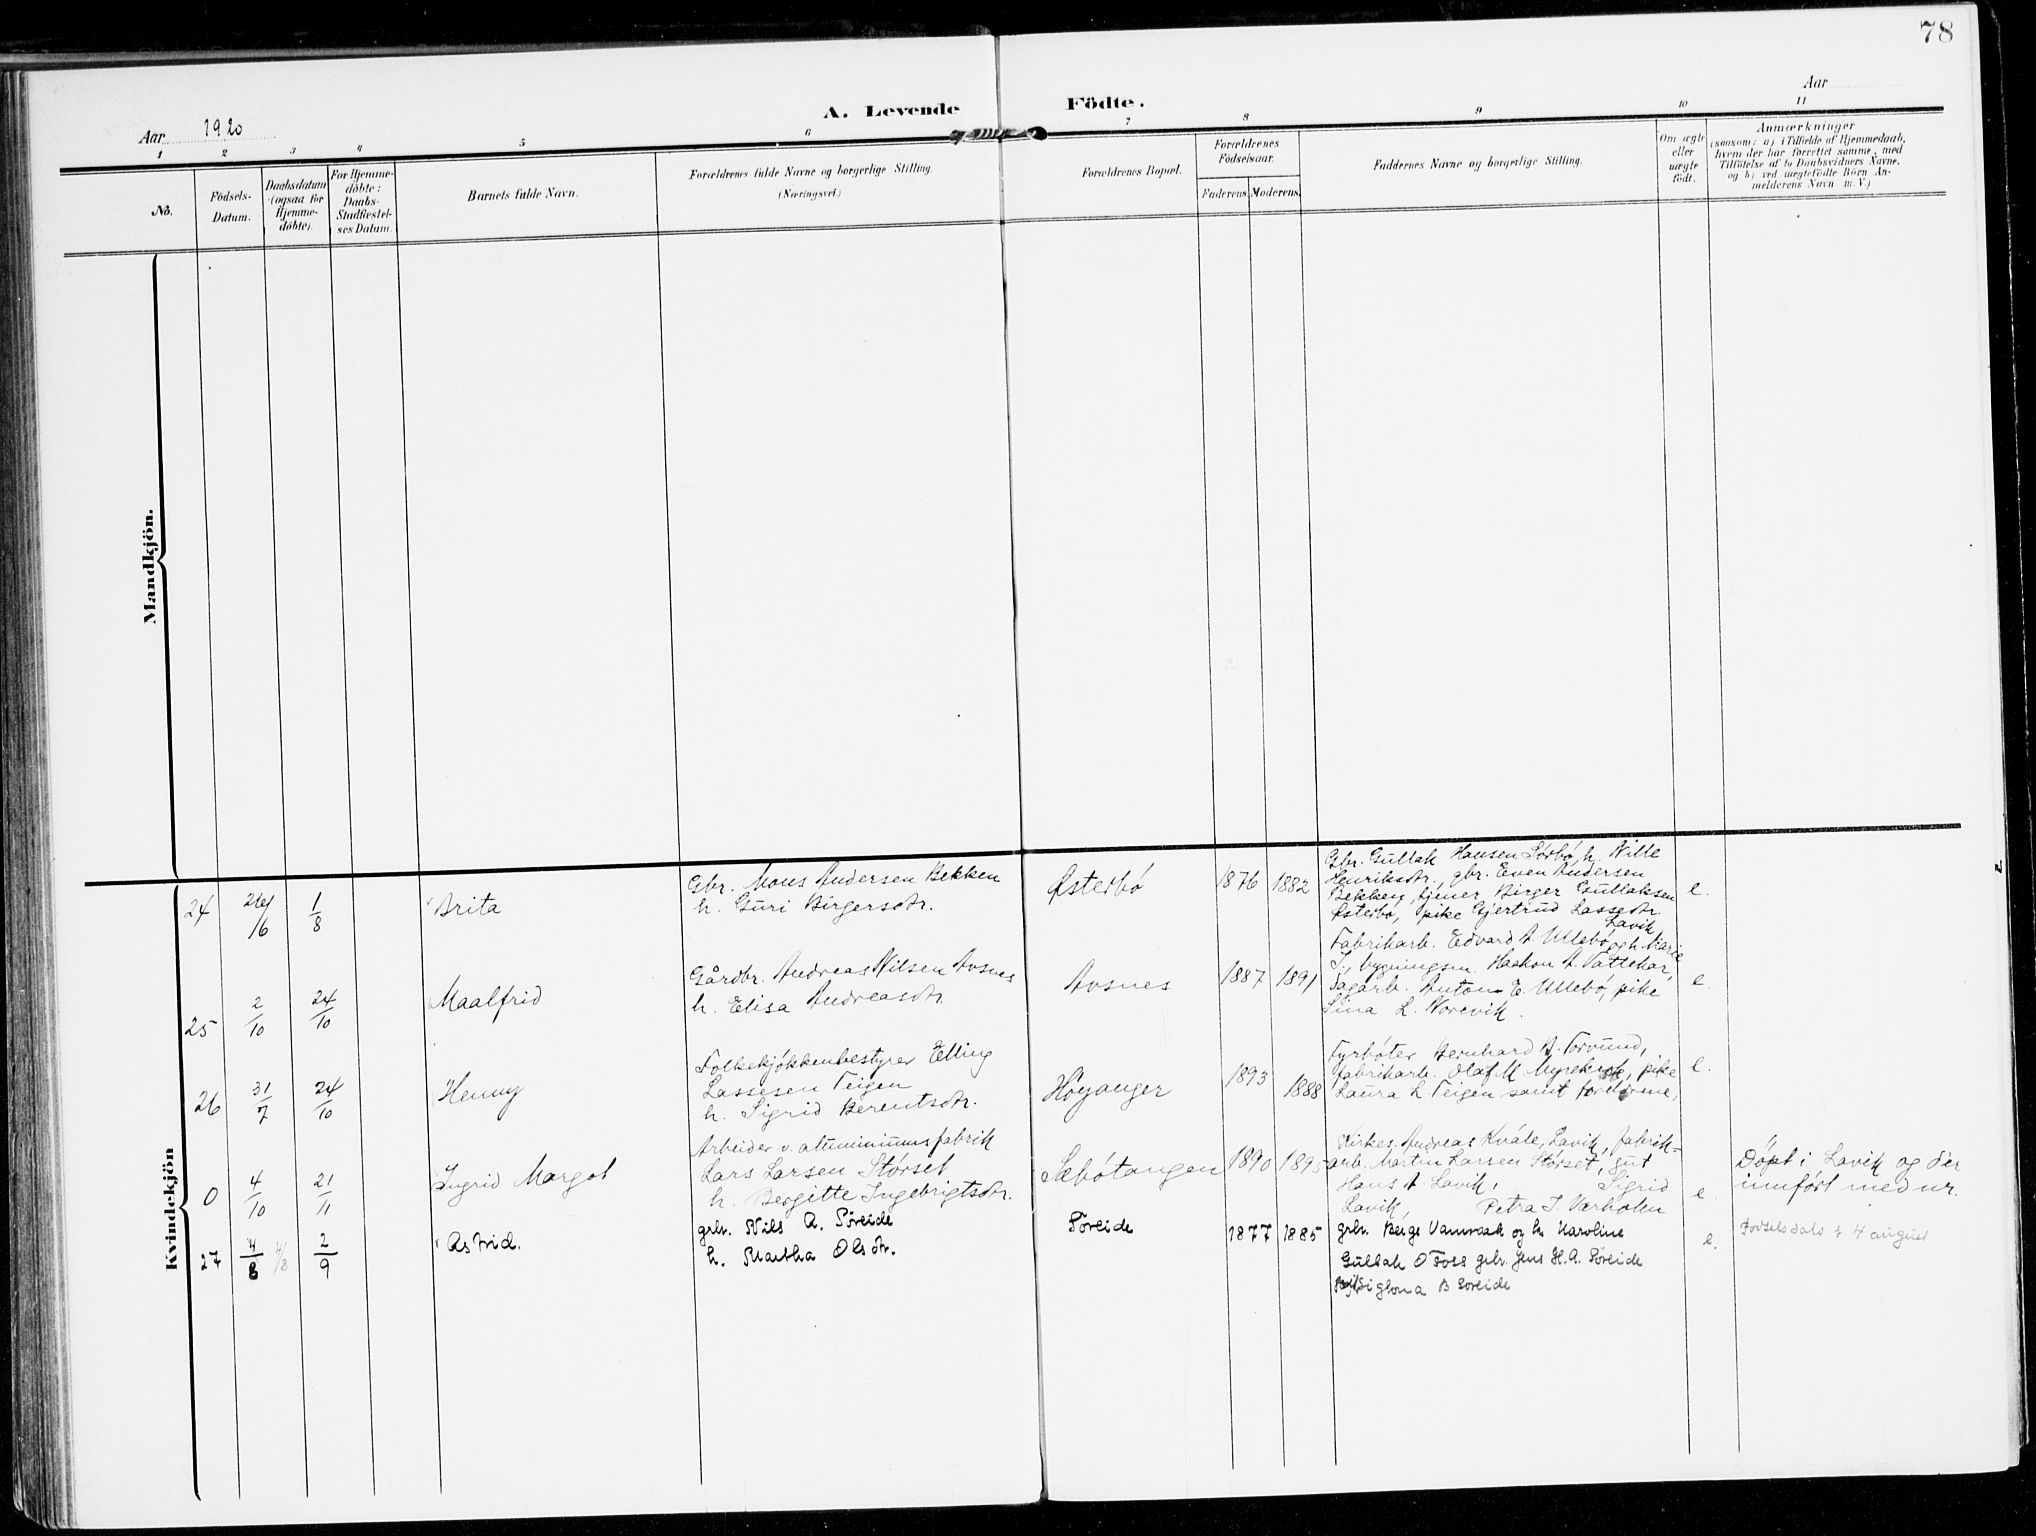 78
A. Levende Födte.
Aar 1920
Aar
1 2 3 4 5 6 7 8 9 10 11
No.
Födsels-Datum.
Daabsdatum (ogsaa for Hjemme-döbte).
For Hjemme-döbte: Daabs-Stadfæstel-ses Datum.
Barnets fulde Navn.
Forældrenes fulde Navne og borgerlige Stilling.
(Næringsvei.)
Forældrenes Bopæl.
Forældrenes Födselsaar.
Faderens. Moderens.
Faddernes Navne og borgerlige Stilling.
Om ægte eller uægte födt.
Anmærkninger
(saasom: a) i Tilfælde af Hjemmedaab,
hvem der har forrettet samme, med
Tilföielse af to Daabsvidners Navne,
og b) ved uægtefödte Börn An-
melderens Navn m. V.)
Mandkjön.
Kvindekjön
24 26/6 1/8 Brita
Gbr. Mons Andersen Bekken
h. Guri Birgersdtr.
Østerbö 1876 1882
Gbr. Gullak Hansen Sørbö, h. Nille
Henriksdtr., gbr. Even Andersen
Bekken, tjener Birger Gullaksen
Østerbö, pike Gjertrud Lassedtr.
Lavik
e.
25 2/10 24/10 Maalfrid
Gårdbr. Andreas Nilsen Avsnes
h. Elisa Andreasdtr.
Avsnes 1887 1891
Fabrikarb. Edvard A. Ullebö og h. Marie
J., bygningsm. Haakon A. Vattekar,
Sagarb. Anton E. Ullebö, pike
Sina L. Norevik.
e.
26 31/7 24/10 Henny
Folkekjøkkenbestyrer Elling
Lassesen Teigen
h. Sigrid Berentsdtr.
Høyanger 1893 1888
Fyrbøter Bernhard B. Torvund,
fabrikarb. Olaf M. Myrekrok, pike
Laura L. Teigen samt foreldrene.
e.
0 4/10 21/11 Ingrid Margot
Arbeider v. aluminiumsfabrik
Lars Larsen Störset
h. Bergitte Ingebrigtsdtr.
Sæbötangen 1890 1895
Kirkes. Andreas Kvåle, Lavik, fabrik-
arb. Martin Larsen Störset, gut
Hans A. Lavik, Sigrid
Lavik, Petra I. Værholen
e.
Döpt i Lavik og der
innført med nr.
27 4/8 4/8 2/9 Astrid.
grbr. Nils A. Söreide
h. Martha Olsdtr.
Söreide 1877 1885
grbr. Berge Vamraak og h. Karoline
Gullak O Foss grbr. Jens H.A. Söreide
Siglona B Soreide
e.
Fødselsdato 4 august